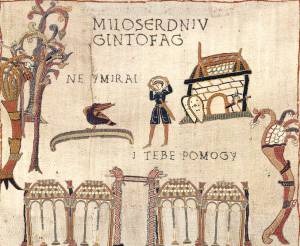 MILOSERDNIJ
GINTOFAG
NE YMIRAI
I TEBE POMOGY